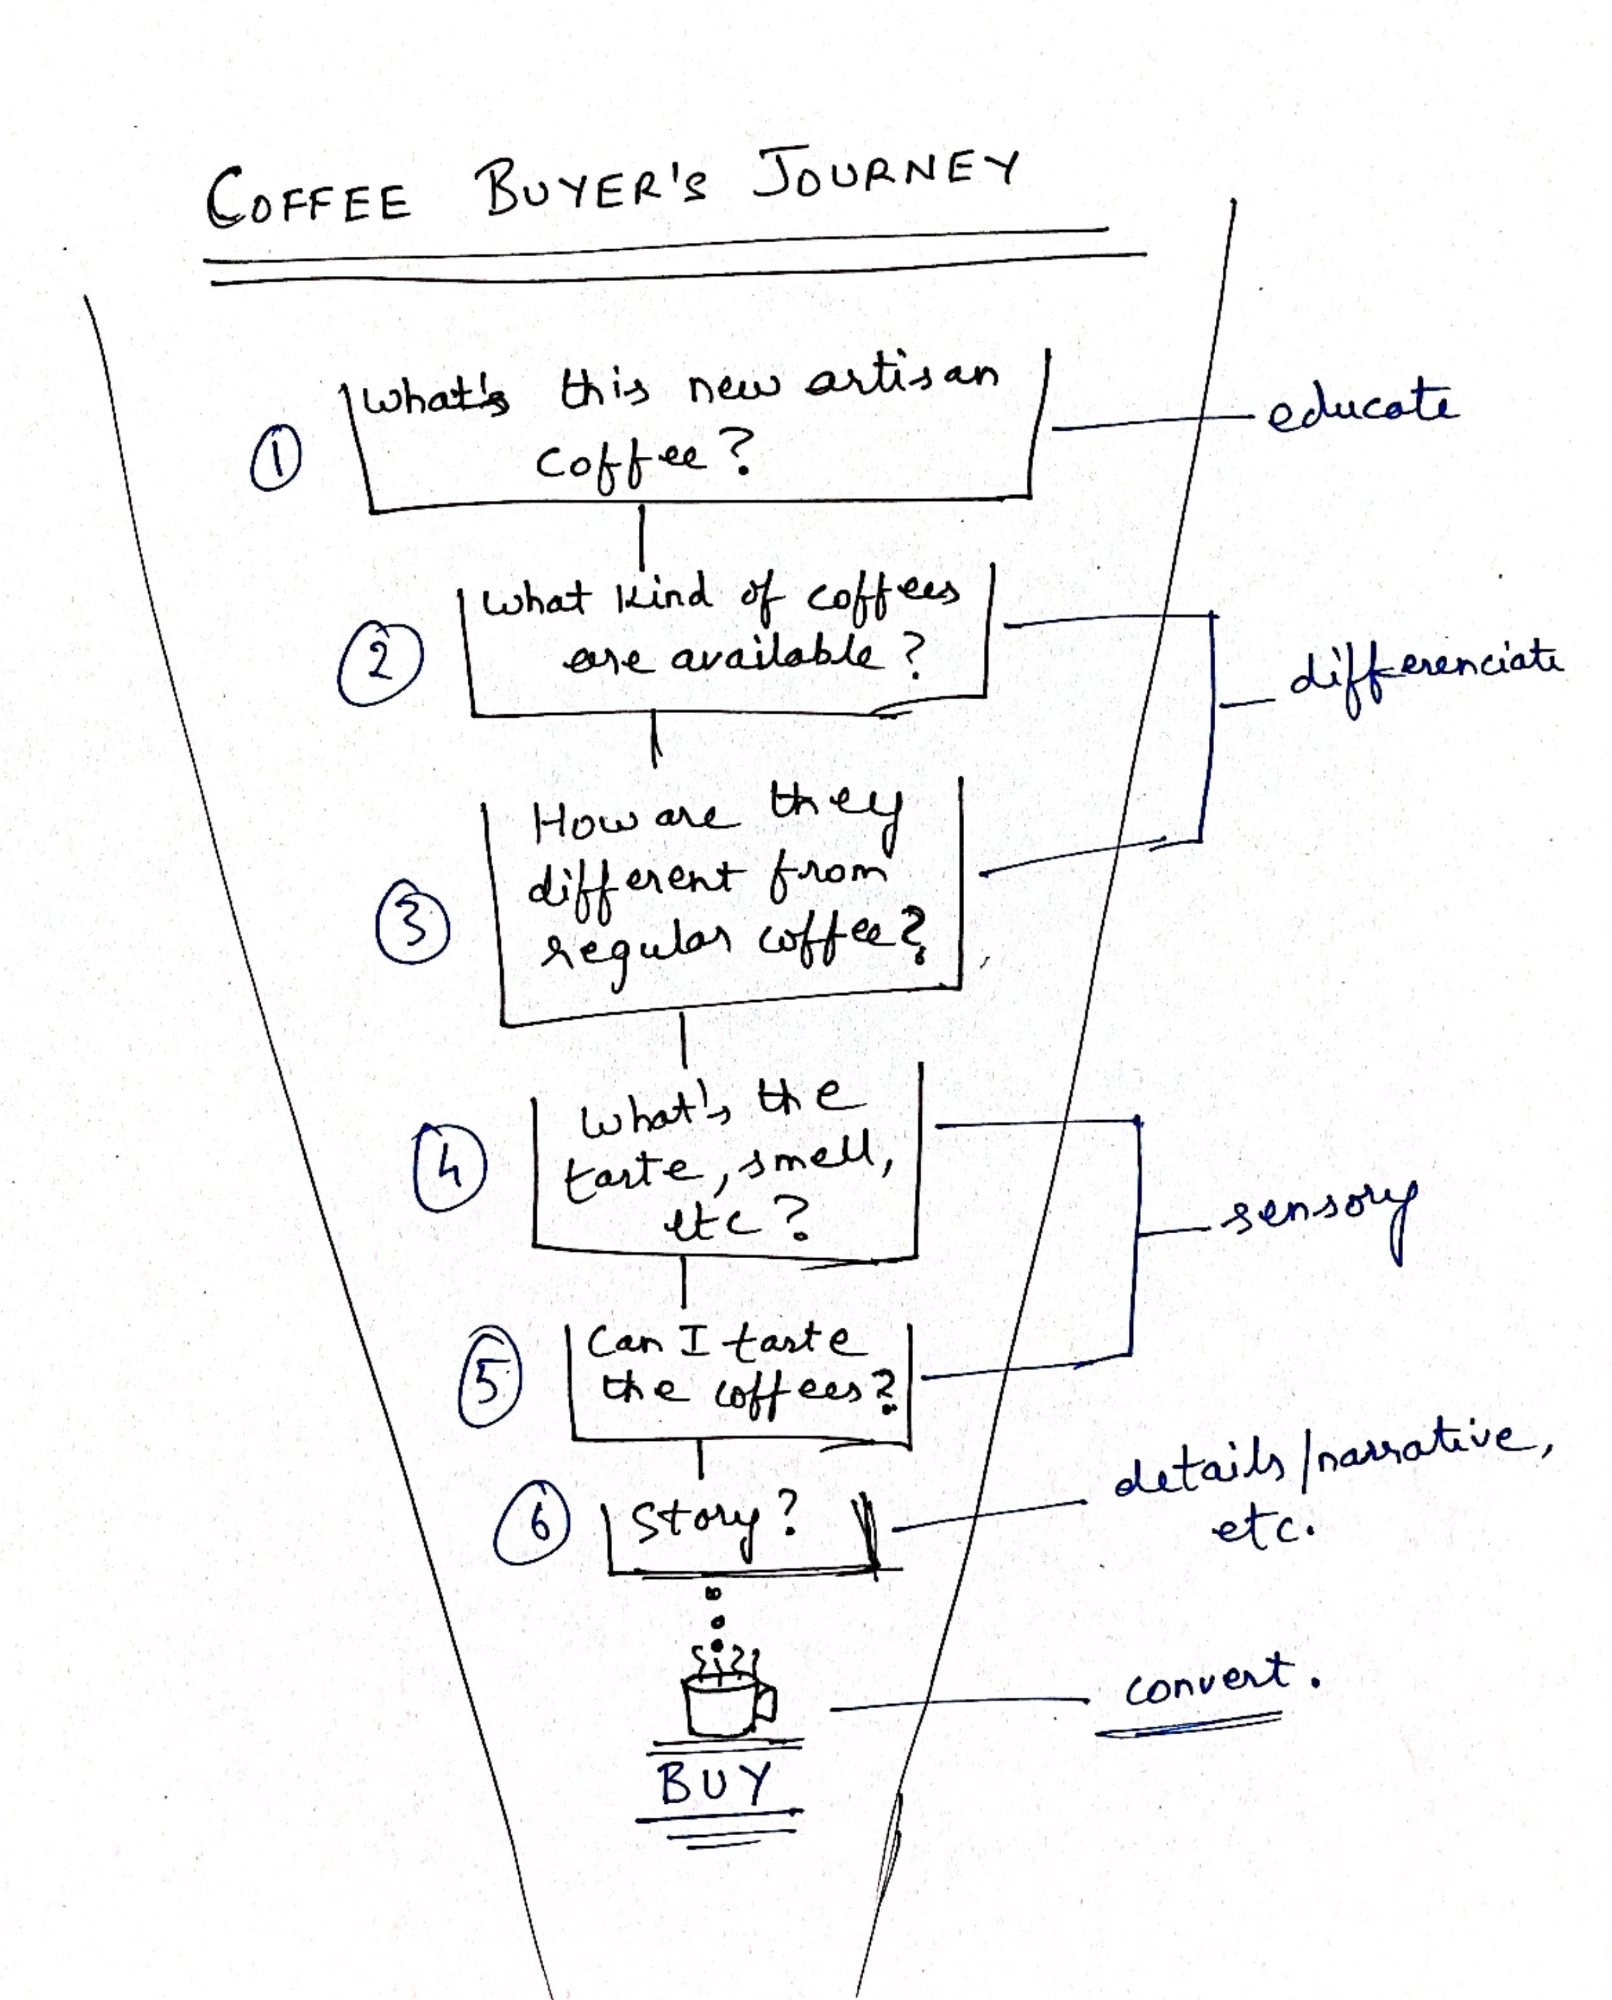 COFFEE BUYER'S JOURNEY
1
What's this new artisan
coffee?
educate
2
What kind of coffees
are available?
differenciate
3
How are they
different from
regular coffee?
4
What's the
taste, smell,
etc?
sensory
5
Can I taste
the coffees?
6
Story?
details/narrative,
etc.
convert.
BUY